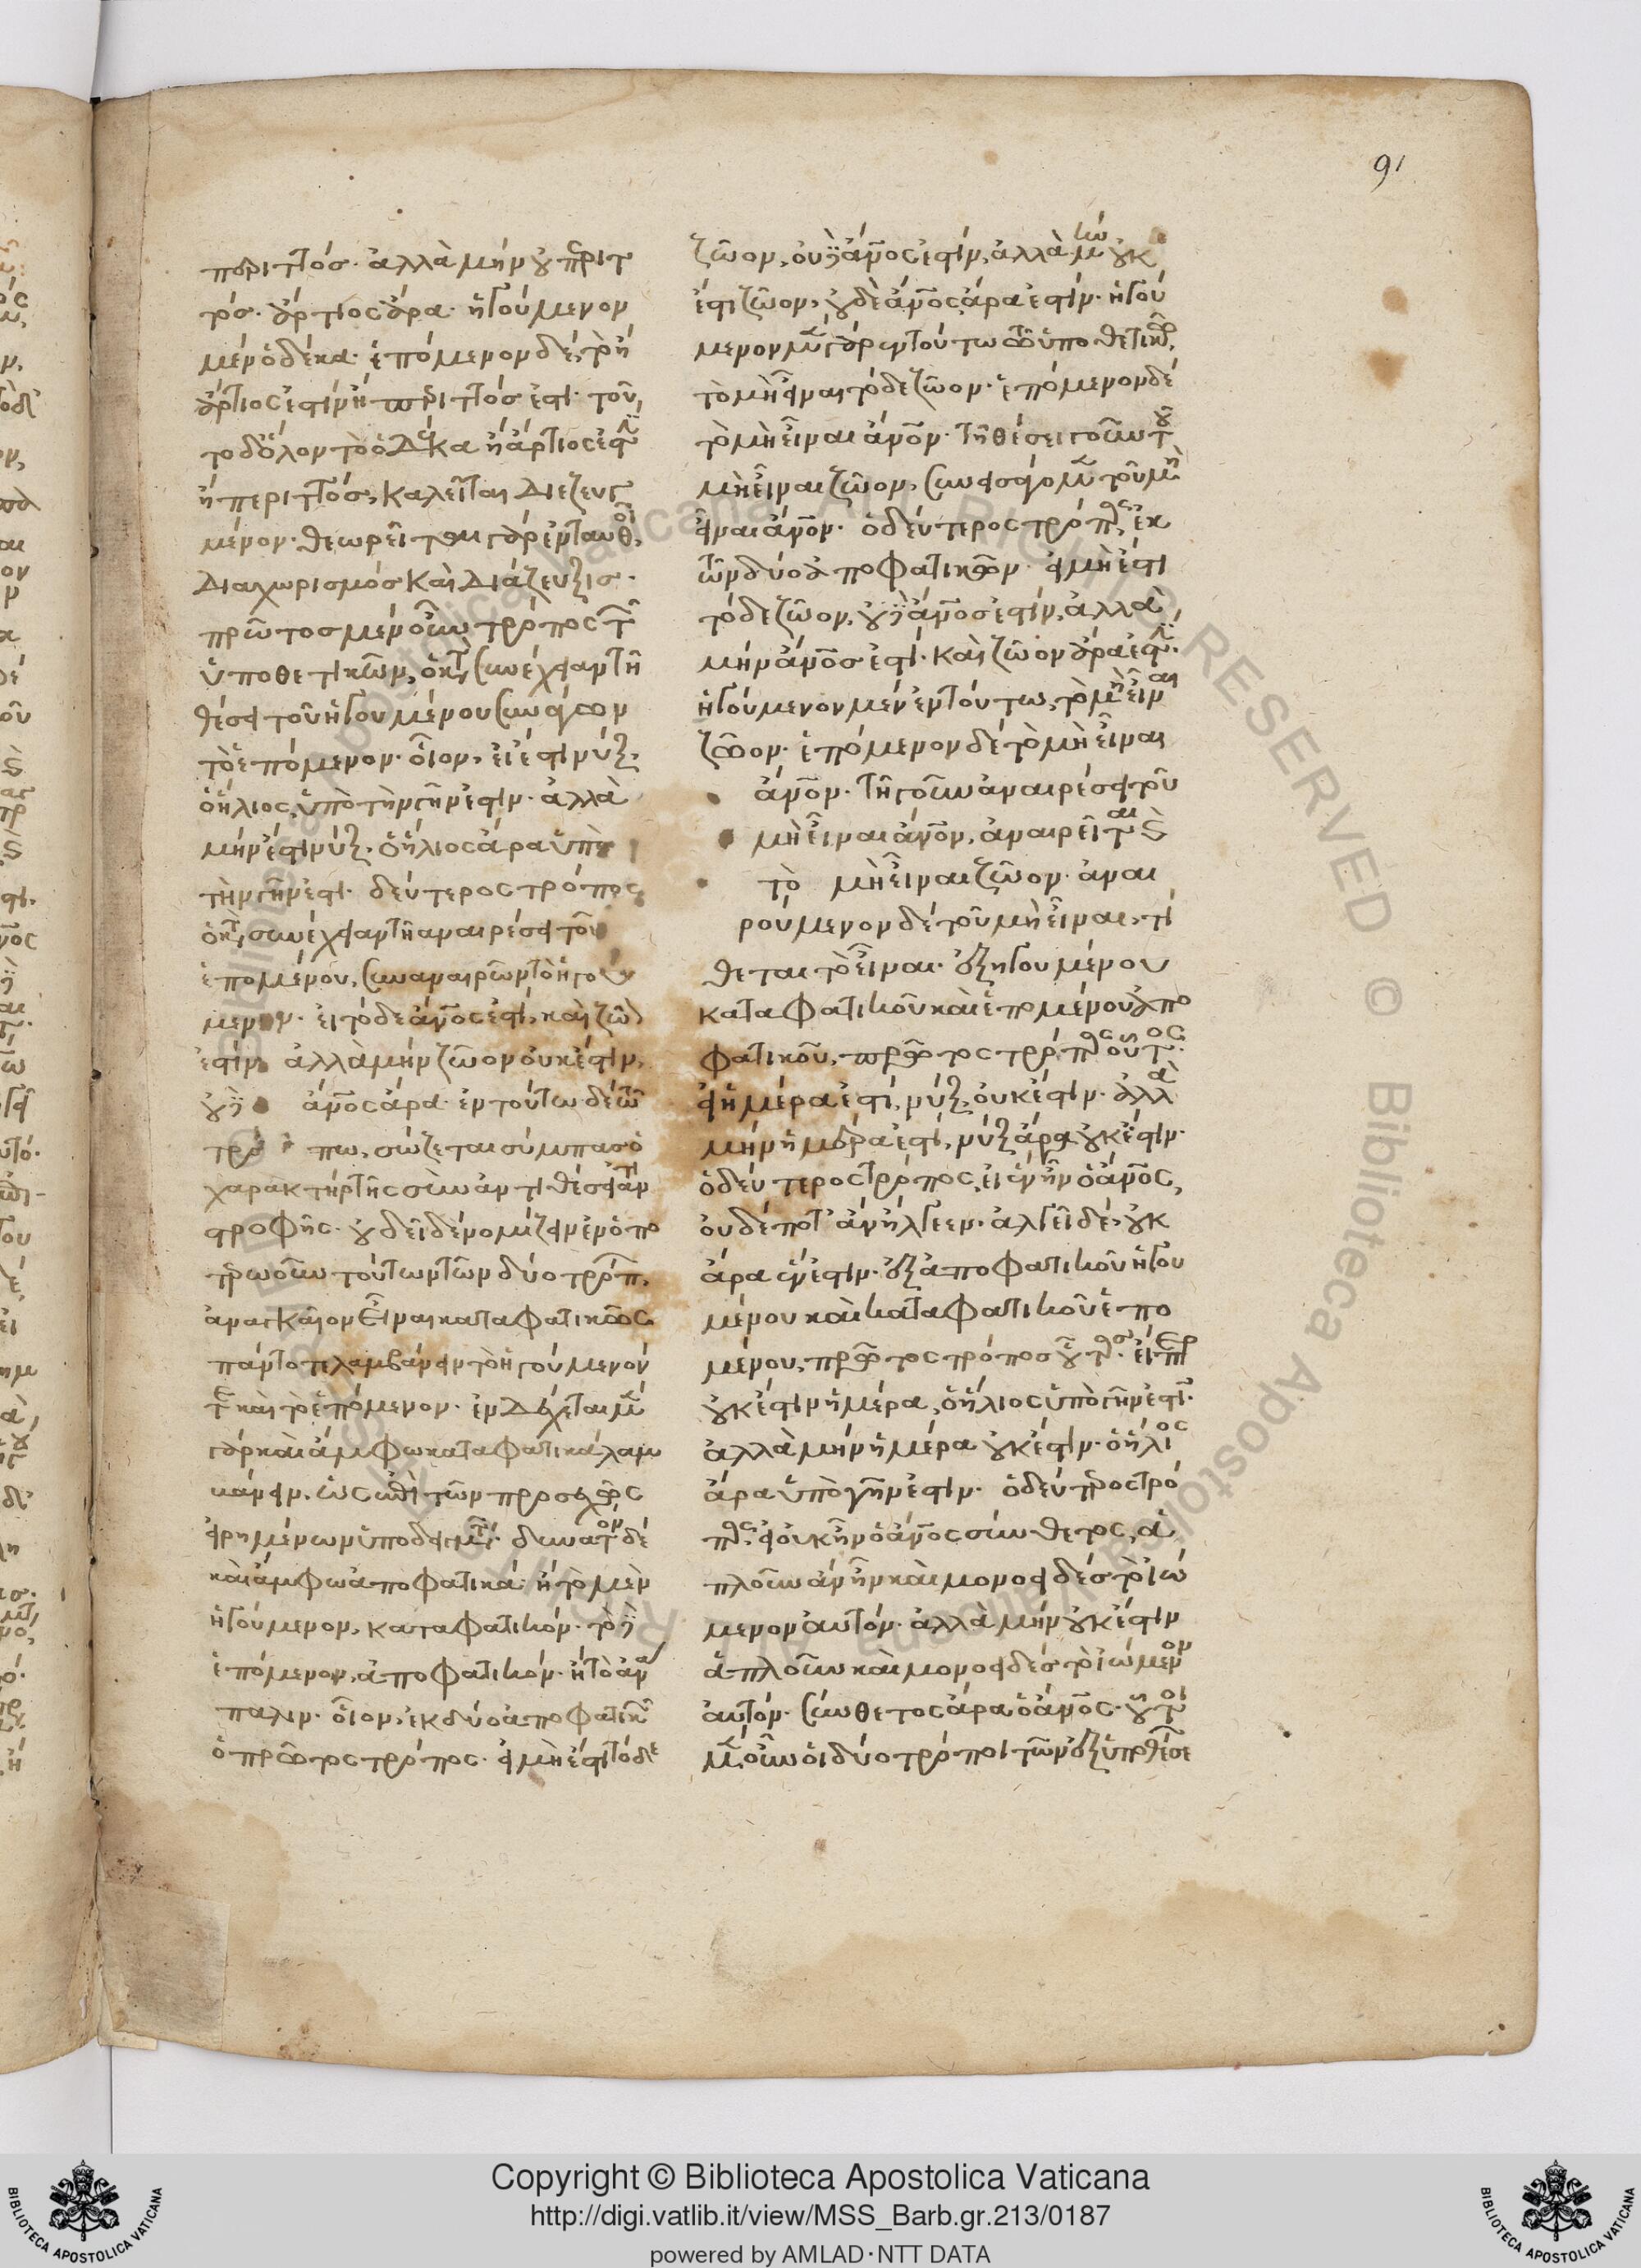 91
περιττός. ἀλλὰ μὴν οὐ περιτ
τός. ἄρτιος ἄρα. ἡγούμενον
μὲν ὁ δέκα. ἑπόμενον δὲ, τὸ ἢ
ἄρτιος ἐστὶν ἢ περιττός ἐστι. τοῦ
το δ' ὅλον τὸ ὁ δέκα ἢ ἄρτιος ἐστὶν
ἢ περιττός, καλεῖται διεζευγ
μένον. θεωρεῖται γὰρ ἐνταῦθα
διαχωρισμὸς καὶ διάζευξις.
πρῶτος μὲν οὖν τρόπος τῶν
ὑποθετικῶν, ὁ κατὰ συνέχειαν τῇ
θέσει τοῦ ἡγουμένου συνάγων
τὸ ἑπόμενον. οἷον, εἰ ἔστι νύξ,
ὁ ἥλιος ὑπὸ τὴν γῆν ἐστιν. ἀλλὰ
μὴν ἔστι νύξ. ὁ ἥλιος ἄρα ὑπὸ
τὴν γῆν ἐστι. δεύτερος τρόπος
ὁ κατὰ συνέχειαν τῇ ἀναιρέσει τοῦ
ἑπομένου, συναναιρῶν τὸ ἡγού
μενον. εἰ τόδε ἄνος ἐστὶ, καὶ ζῶον
ἐστιν ἀλλὰ μὴν ζῶον οὐκ ἔστιν,
οὐδ' ἄνος ἄρα. ἐν τούτω δὲ τῶ
τρό πω, σώζεται σύμπας ὁ
χαρακτὴρ τῆς σὺν ἀντιθέσει ἀντι
στροφῆς. οὐ δεῖ δὲ νομίζειν ἐν ὁπο
τέρω οὖν τούτων τῶν δύο τρόπων
ἀναγκαῖον εἶναι καταφατικῶς
πάντοτε λαμβάνειν τὸ ἡγούμενόν
τε καὶ τὸ ἑπόμενον. ἐνδέχεται μὲν
γὰρ καὶ ἄμφω καταφατικὰ λαμ
βάνειν, ὡς ἐπὶ τῶν προσεχῶς
εἰρημένων ὑποδειγμάτων. δυνατὸν δὲ
καὶ ἄμφω ἀποφατικά. ἢ τὸ μὲν
ἡγούμενον, καταφατικόν. τὸ δ'
ἑπόμενον, ἀποφατικόν. ἢ τὸ ἀνά
παλιν. οἷον, ἐκ δύο ἀποφατικῶν
ὁ πρῶτος τρόπος. εἰ μὴ ἔστι τόδε
ζῶον, οὐδ' ἄνος ἐστιν, ἀλλὰ μὴν οὐκ
ἔστι ζῶον, οὐδὲ ἄνος ἄρα ἐστιν. ἡγού
μενον μὲν γὰρ ἐν τούτω τῶ ὑποθετικῶ,
τὸ μὴ εἶναι τόδε ζῶον. ἑπόμενον δὲ
τὸ μὴ εἶναι ἄνον. τῇ θέσει γοῦν τοῦ
μὴ εἶναι ζῶον, συνεισάγομεν τοῦ μὴ
εἶναι ἄνον. ὁ δεύτερος τρόπος ἐκ
τῶν δύο ἀποφατικῶν. εἰ μὴ ἔστι
τόδε ζῶον, οὐδ' ἄνος ἐστιν, ἀλλὰ
μὴν ἄνος ἐστι. καὶ ζῶον ἄρα ἐστιν.
ἡγούμενον μὲν ἐν τούτω, τὸ μὴ εἶναι
ζῶον. ἑπόμενον δὲ τὸ μὴ εἶναι
ἄνον. τῇ γοῦν ἀναιρέσει τοῦ
μὴ εἶναι ἄνον, ἀναιρεῖται καὶ
τὸ μὴ εἶναι ζῶον. ἀναι
ρούμενον δὲ τοῦ μὴ εἶναι, τί
θεται τὸ εἶναι. ἐξ ἡγουμένου
καταφατικοῦ καὶ ἑπομένου ἀπο
φατικοῦ, πρῶτος τρόπος οὗτος.
εἰ ἡμέρα ἐστὶ, νύξ οὐκ ἔστιν. ἀλλὰ
μὴν ἡμέρα ἐστὶ, νύξ ἄρα οὐκ ἔστιν.
ὁ δεύτερος τρόπος, εἰ ἓν ἦν ὁ ἄνος,
οὐδέποτ' ἂν ἤλγεεν. ἀλγεῖ δὲ, οὐκ
ἄρα ἓν ἐστιν. ἐξ ἀποφατικοῦ ἡγου
μένου καὶ καταφατικοῦ ἑπο
μένου, πρῶτος τρόπος οὗτος. εἴπερ
οὐκ ἔστιν ἡμέρα, ὁ ἥλιος ὑπὸ γῆν ἐστι.
ἀλλὰ μὴν ἡμέρα οὐκ ἔστιν. ὁ ἥλιος
ἄρα ὑπὸ γῆν ἐστιν. ὁ δεύτερος τρό
πος, εἰ οὐκ ἦν ὁ ἄνος σύνθετος, ἁ
πλοῦν ἂν ἦν καὶ μονοειδὲς τὸ ἰώ
μενον αὐτόν. ἀλλὰ μὴν οὐκ ἔστιν
ἁπλοῦν καὶ μονοειδὲς τὸ ἰώμενον
αὐτόν. σύνθετος ἄρα ὁ ἄνος. οὗτοι
μὲν οὖν οἱ δύο τρόποι τῶν ἐξ ὑποθέσε
Copyright © Biblioteca Apostolica Vaticana
http://digi.vatlib.it/view/MSS_Barb.gr.213/0187
powered by AMLAD·NTT DATA